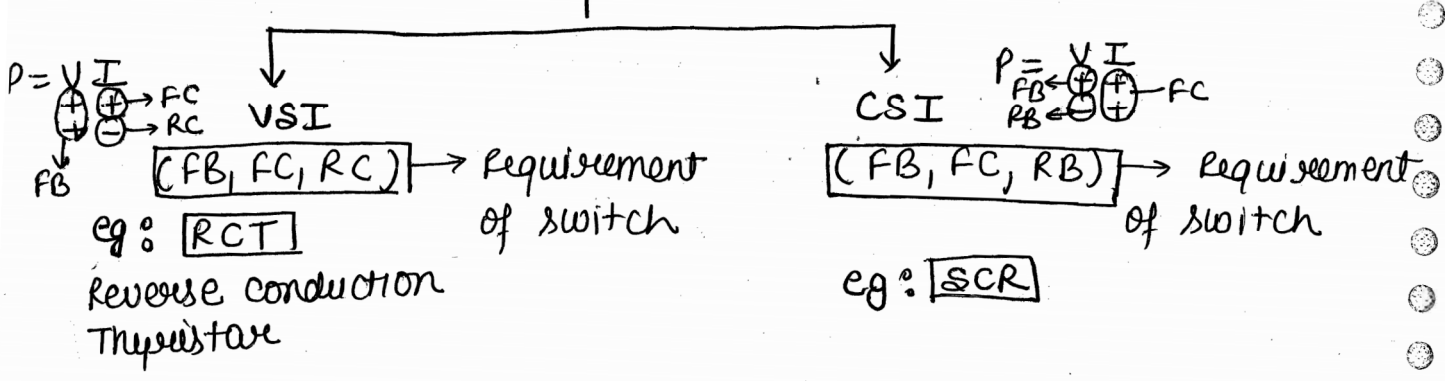 P = V I
+ + → FC
+ - → RC
FB
VSI
(FB, FC, RC) → Requirement
of switch
eg: RCT
Reverse conduction
Thyristor
P = V I
FB ← + + - FC
RB ← - +
CSI
(FB, FC, RB) → Requirement
of switch
eg: SCR